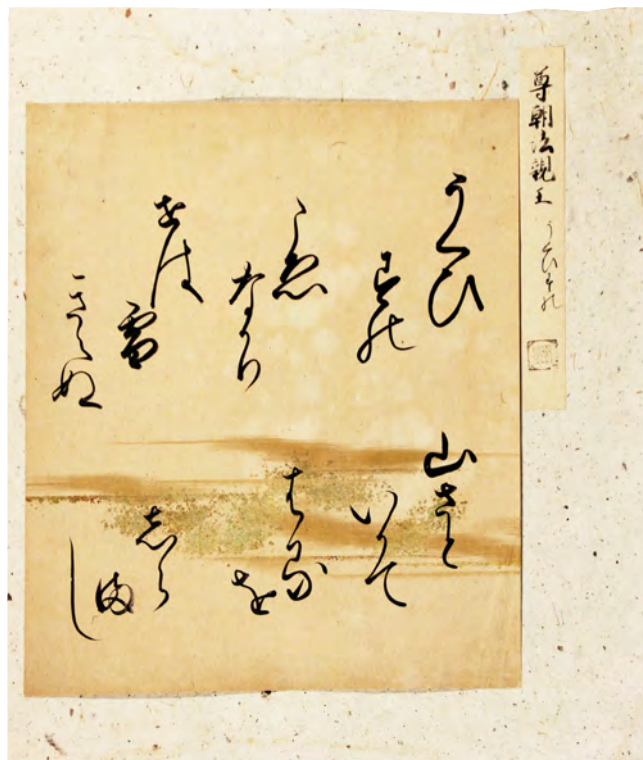 尊朝法親王 うくひすの
うくひ
すの
こゑ
なかり
せは
雪
きえぬ
山さと
いかて
はる
を
しら
ま
し